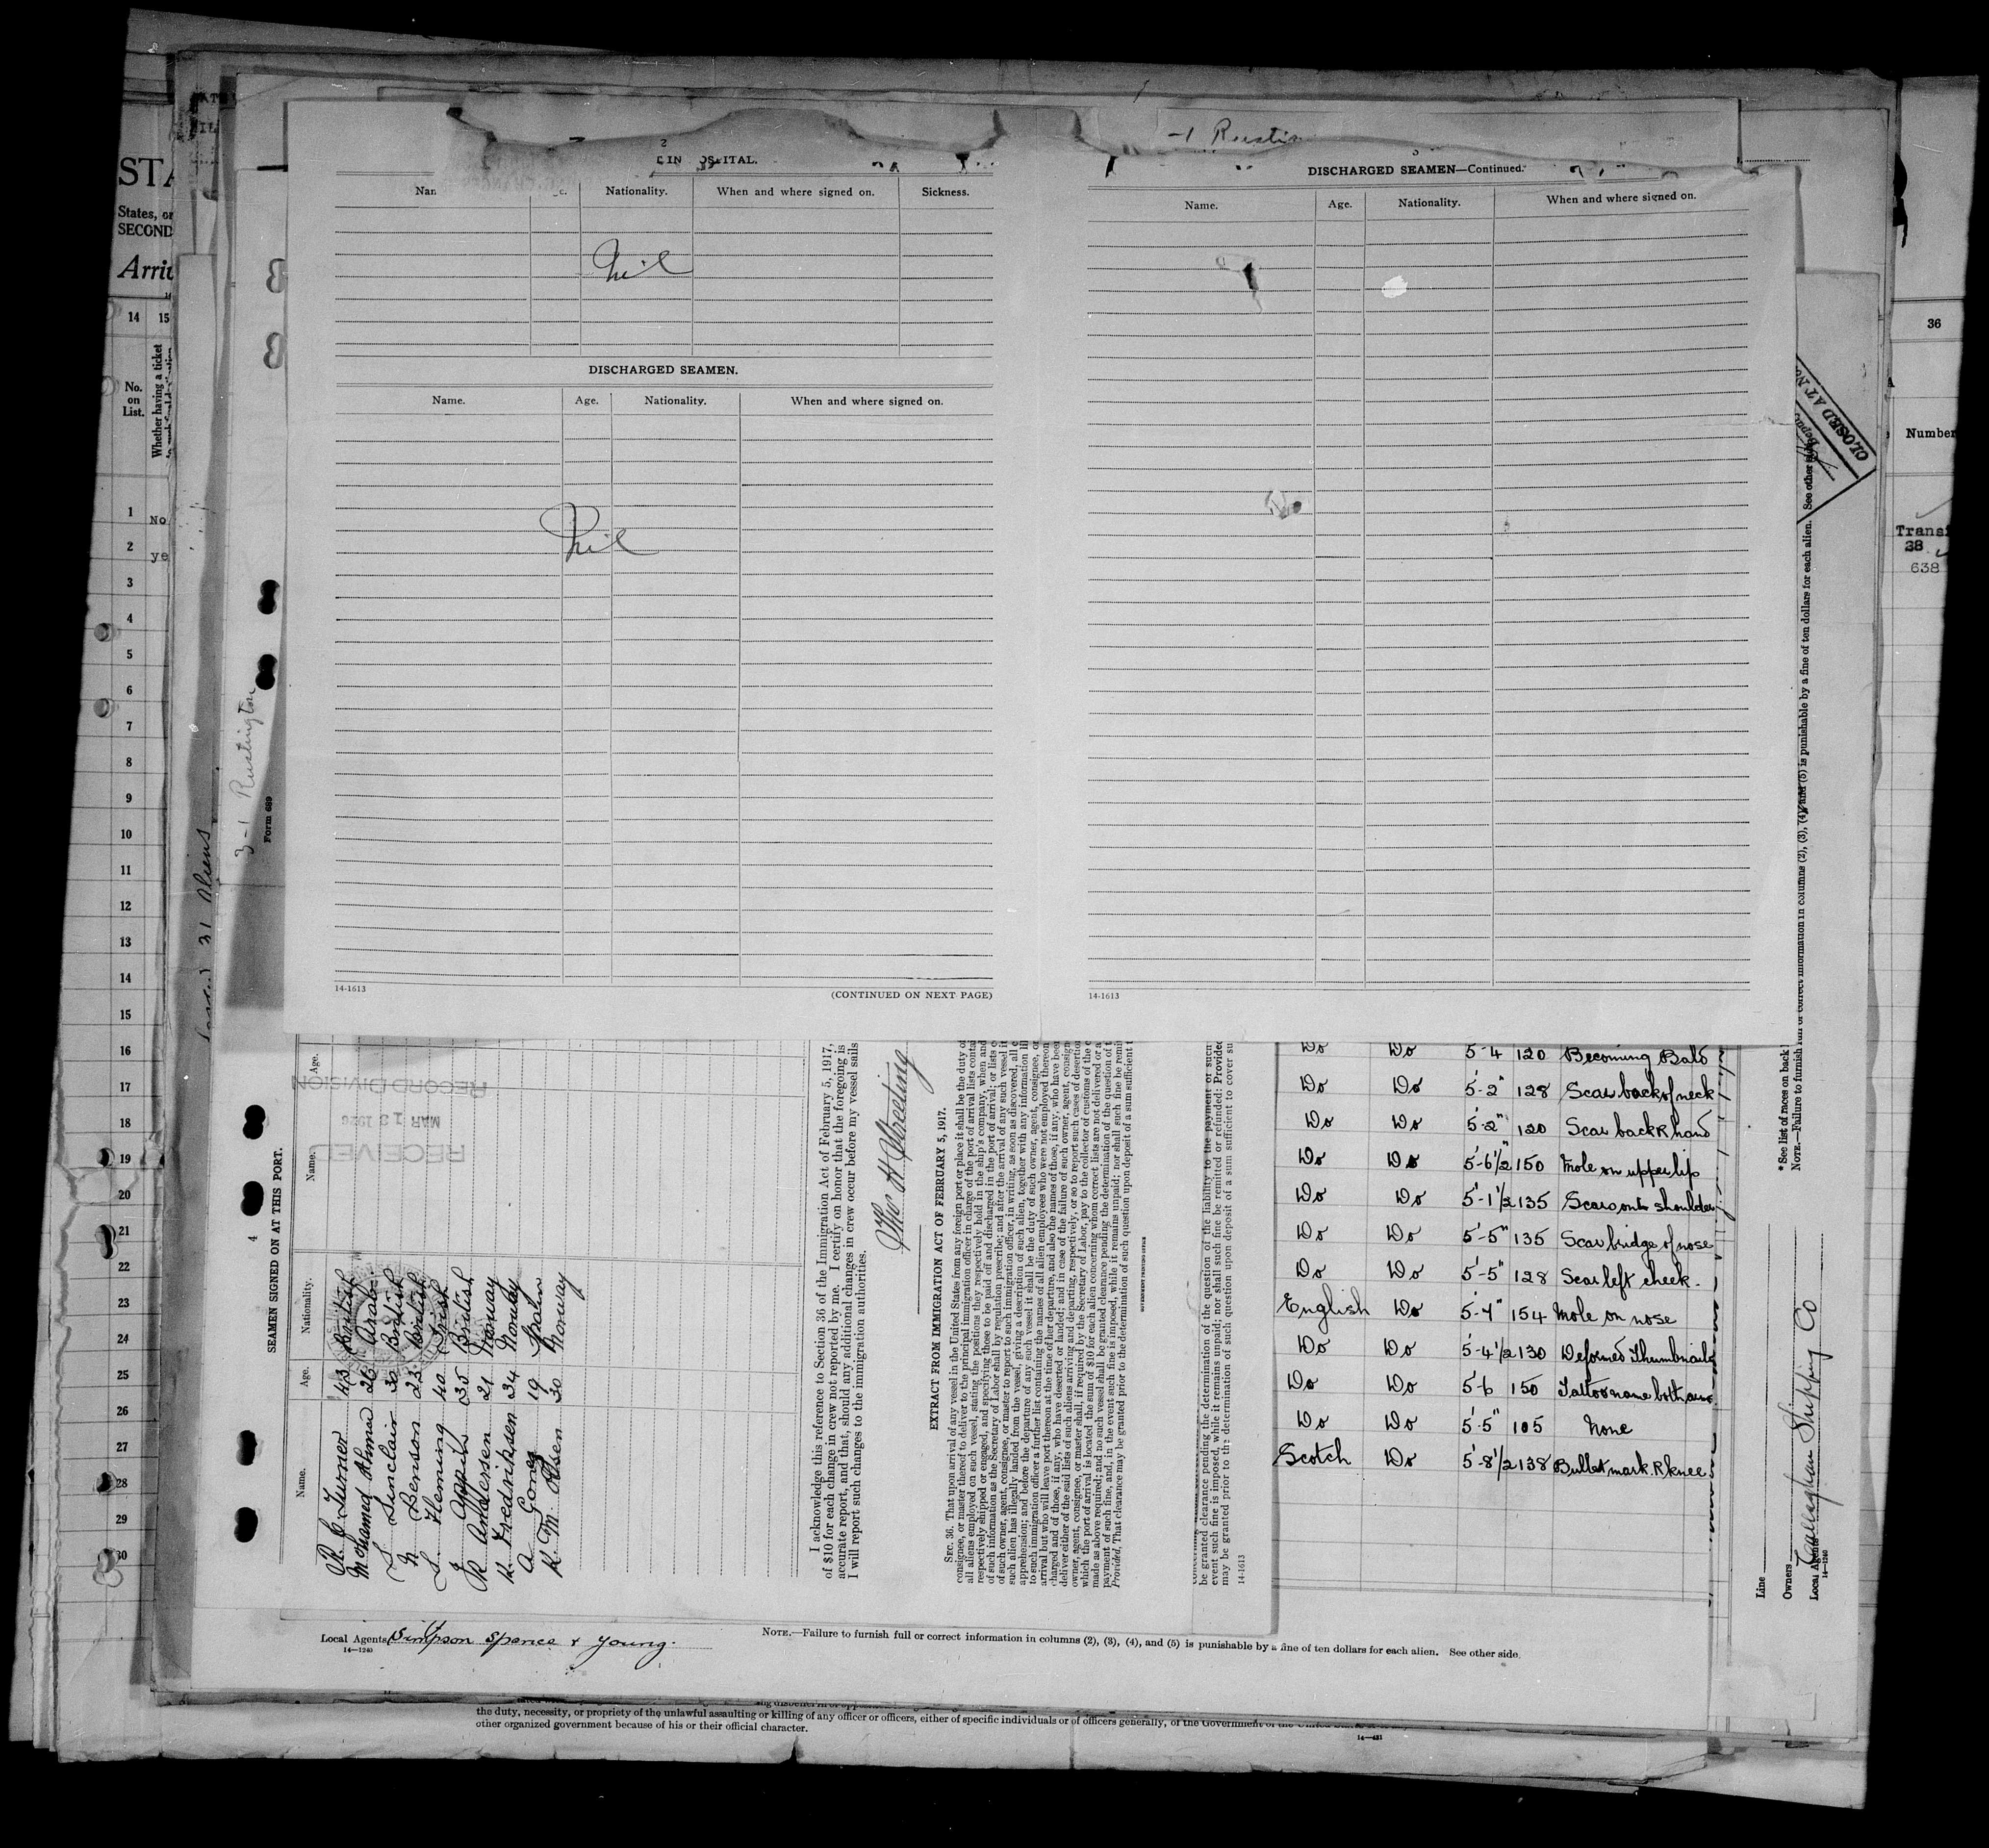 -1 Rustin
2
IN OSPITAL.
Nationality. When and where signed on. Sickness.
Nil
DISCHARGED SEAMEN.
Name. Age. Nationality. When and where signed on.
Nil
14-1613 (CONTINUED ON NEXT PAGE)
3
DISCHARGED SEAMEN—Continued.
Name. Age. Nationality. When and where signed on.
14-1613
STA
States, or
SECOND
Arri
14 15
No. on List.
Whether having a ticket
1 No
2 ye
3
4
5
6
7
8
9
10
11
12
13
14
15
16
17
18
19
20
21
22
23
24
25
26
27
28
29
30
31 Aliens
3-1 Rustington
Form 689
4
SEAMEN SIGNED ON AT THIS PORT.
Name. Age. Nationality. Name. Age.
R. J. Turner 43 British
Mohamed Ahmed 26 Arab.
S. Sinclair 30 British
N. Benson 23 British
S. Fleming 40 Irish
35 British
R Andersen 21 Norway
K. Fredriksen 34 Norway
A Gomez 19 Spain
K. M. Olsen 30 Norway
RECEIVED
MAR 13 1926
RECORD DIVISION
I acknowledge this reference to Section 36 of the Immigration Act of February 5, 1917,
of $10 for each change in crew not reported by me. I certify on honor that the foregoing is
accurate report, and that, should any additional changes in crew occur before my vessel sails
I will report such changes to the immigration authorities.
Thos H Streeting
EXTRACT FROM IMMIGRATION ACT OF FEBRUARY 5, 1917.
SEC. 36. That upon arrival of any vessel in the United States from any foreign port or place it shall be the duty of
consignee, or master thereof to deliver to the principal immigration officer in charge of the port of arrival lists contai
all aliens employed on such vessel, stating the positions they respectively hold in the ship's company, when and
respectively shipped or engaged, and specifying those to be paid off and discharged in the port of arrival; or lists c
of such information as the Secretary of Labor shall by regulation prescribe; and after the arrival of any such vessel it
of such owner, agent, consignee, or master to report to such immigration officer, in writing, as soon as discovered, all c
such alien has illegally landed from the vessel, giving a description of such alien, together with any information lik
apprehension; and before the departure of any such vessel it shall be the duty of such owner, agent, consignee, or
to such immigration officer a further list containing the names of all alien employees who were not employed thereon
arrival but who will leave port thereon at the time of her departure, and also the names of those, if any, who have been
charged and of those, if any, who have deserted or landed; and in case of the failure of such owner, agent, consign
deliver either of the said lists of such aliens arriving and departing, respectively, or so to report such cases of desertion
owner, agent, consignee, or master shall, if required by the Secretary of Labor, pay to the collector of customs of the c
which the port of arrival is located the sum of $10 for each alien concerning whom correct lists are not delivered or a
made as above required; and no such vessel shall be granted clearance pending the determination of the question of t
payment of such fine, and, in the event such fine is imposed, while it remains unpaid; nor shall such fine be remit
Provided, That clearance may be granted prior to the determination of such question upon deposit of a sum sufficient t
be granted clearance pending the determination of the question of the liability to the payment of such
event such fine is imposed, while it remains unpaid; nor shall such fine be remitted or refunded: Provided
may be granted prior to the determination of such question upon deposit of a sum sufficient to cover su
14-1613
Do Do 5-4 120 Becoming Bald
Do Do 5-2" 128 Scar back of neck
Do Do 5-2" 120 Scar back R hand
Do Do 5-6 1/2 150 Mole on upper lip
Do Do 5-1 1/2 135 Scar on shoulder
Do Do 5-5" 135 Scar bridge of nose
Do Do 5-5" 128 Scar left cheek.
English Do 5-4" 154 Mole on nose
Do Do 5-4 1/2 130 Deformed Thumbnails
Do Do 5-6 150 Tattoo name both arms
Do Do 5-5" 105 None
Scotch Do 5-8 1/2 138 Bullet mark R knee
Local Agents Simpson Spence & Young.
14-1240
NOTE.—Failure to furnish full or correct information in columns (2), (3), (4), and (5) is punishable by a fine of ten dollars for each alien. See other side.
the duty, necessity, or propriety of the unlawful assaulting or killing of any officer or officers, either of specific individuals or of officers generally, of the Government of the United
other organized government because of his or their official character.
14-431
36
Number
Transi
38
638
CLOSED AT
*See list of races on back
NOTE.—Failure to furnish full or correct information in columns (2), (3), (4), and (5) is punishable by a fine of ten dollars for each alien. See other side
Line
Owners
Local Agents Callaghan Shipping Co
14-1240